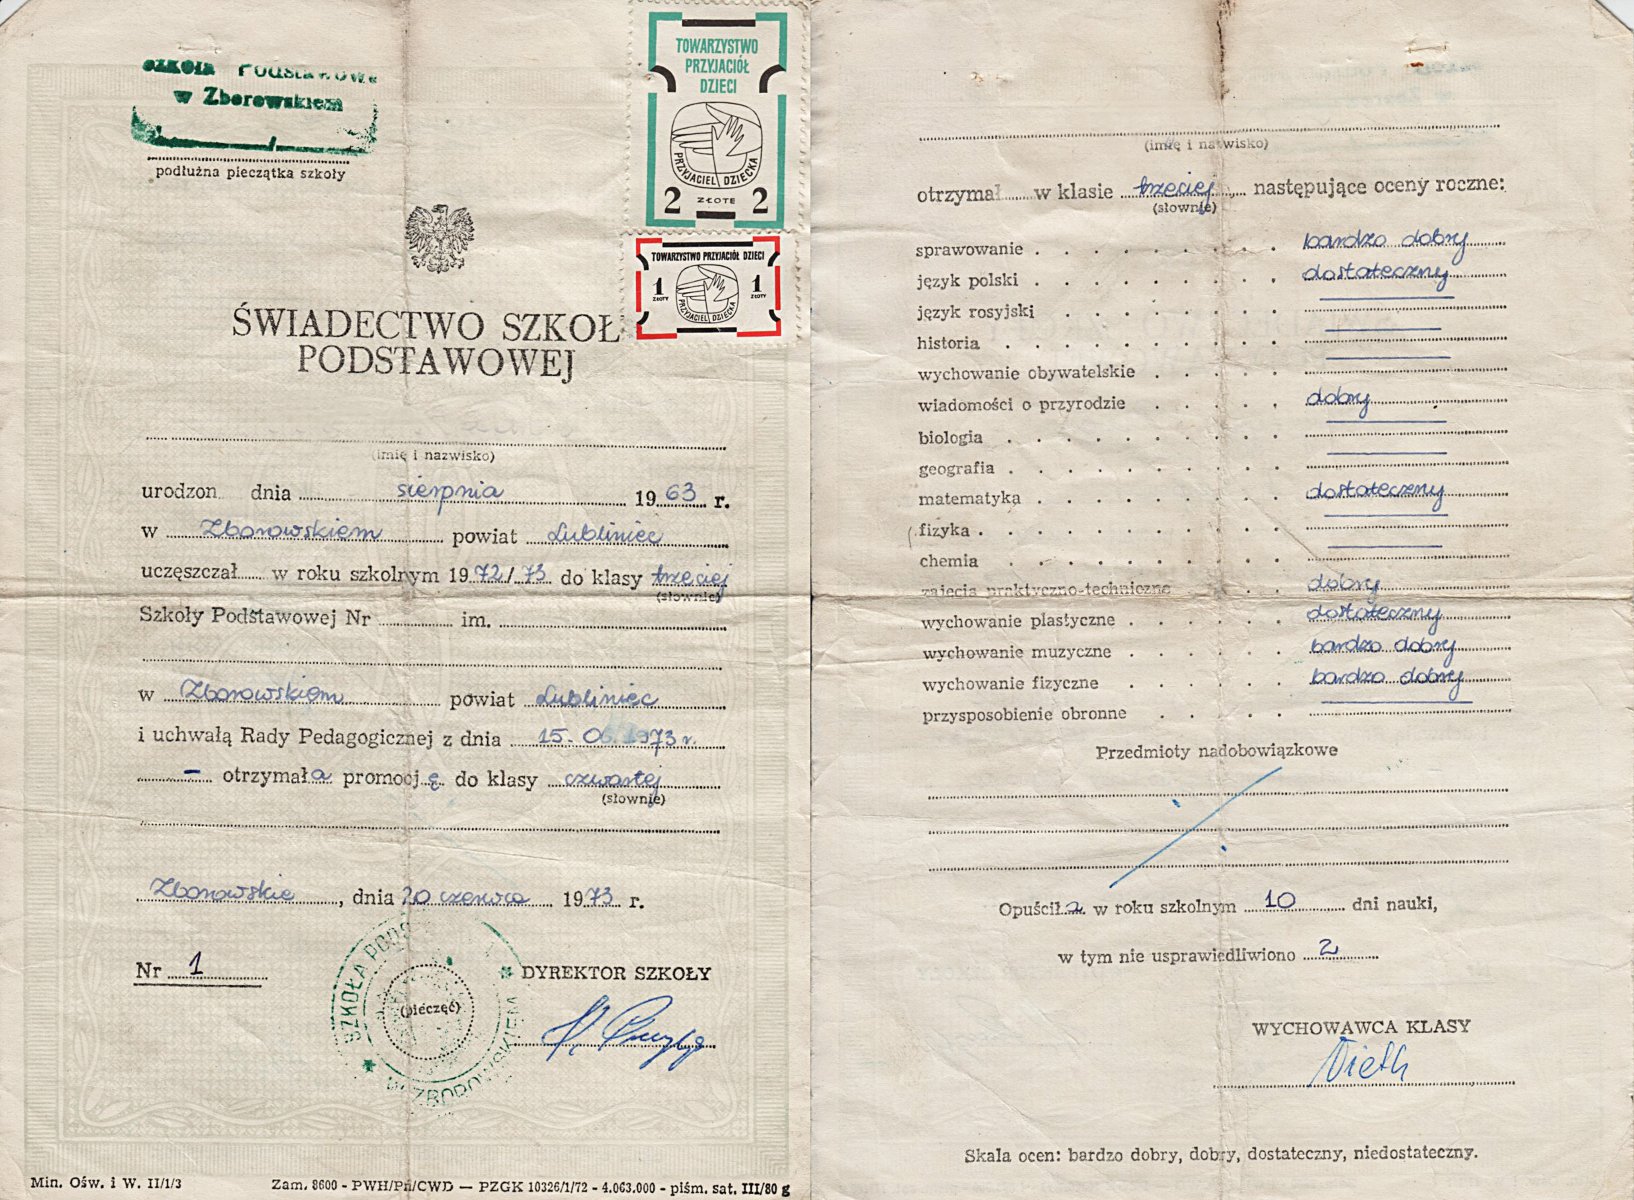 Szkoła Podstawowa
w Zborowskiem
podłużna pieczątka szkoły
TOWARZYSTWO
PRZYJACIÓŁ
DZIECI
PRZYJACIEL DZIECKA
2 ZŁOTE 2
TOWARZYSTWO PRZYJACIÓŁ DZIECI
1 ZŁOTY 1 ZŁOTY
PRZYJACIEL DZIECKA
ŚWIADECTWO SZKOŁ
PODSTAWOWEJ
(imię i nazwisko)
urodzon dnia sierpnia 1963 r.
w Zborowskiem powiat Lubliniec
uczęszczał w roku szkolnym 1972/73 do klasy trzeciej
(słownie)
Szkoły Podstawowej Nr im.
w Zborowskiem powiat Lubliniec
i uchwałą Rady Pedagogicznej z dnia 15.06.1973 r.
– otrzymała promocję do klasy czwartej
(słownie)
Zborowskie, dnia 20 czerwca 1973 r.
Nr 1
SZKOŁA PODS
W ZBOROWSKIEM
(pieczęć)
DYREKTOR SZKOŁY
Min. Ośw. i W. II/1/3
Zam. 8600 - PWH/Pń/CWD — PZGK 10326/1/72 - 4.063.000 - piśm. sat. III/80 g
(imię i nazwisko)
otrzymał w klasie trzeciej następujące oceny roczne:
(słownie)
sprawowanie bardzo dobry
język polski dostateczny
język rosyjski
historia
wychowanie obywatelskie
wiadomości o przyrodzie dobry
biologia
geografia
matematyka dostateczny
fizyka
chemia
zajęcia praktyczno-techniczne dobry
wychowanie plastyczne dostateczny
wychowanie muzyczne bardzo dobry
wychowanie fizyczne bardzo dobry
przysposobienie obronne
Przedmioty nadobowiązkowe
Opuściła w roku szkolnym 10 dni nauki,
w tym nie usprawiedliwiono 2
WYCHOWAWCA KLASY
Vieth
Skala ocen: bardzo dobry, dobry, dostateczny, niedostateczny.